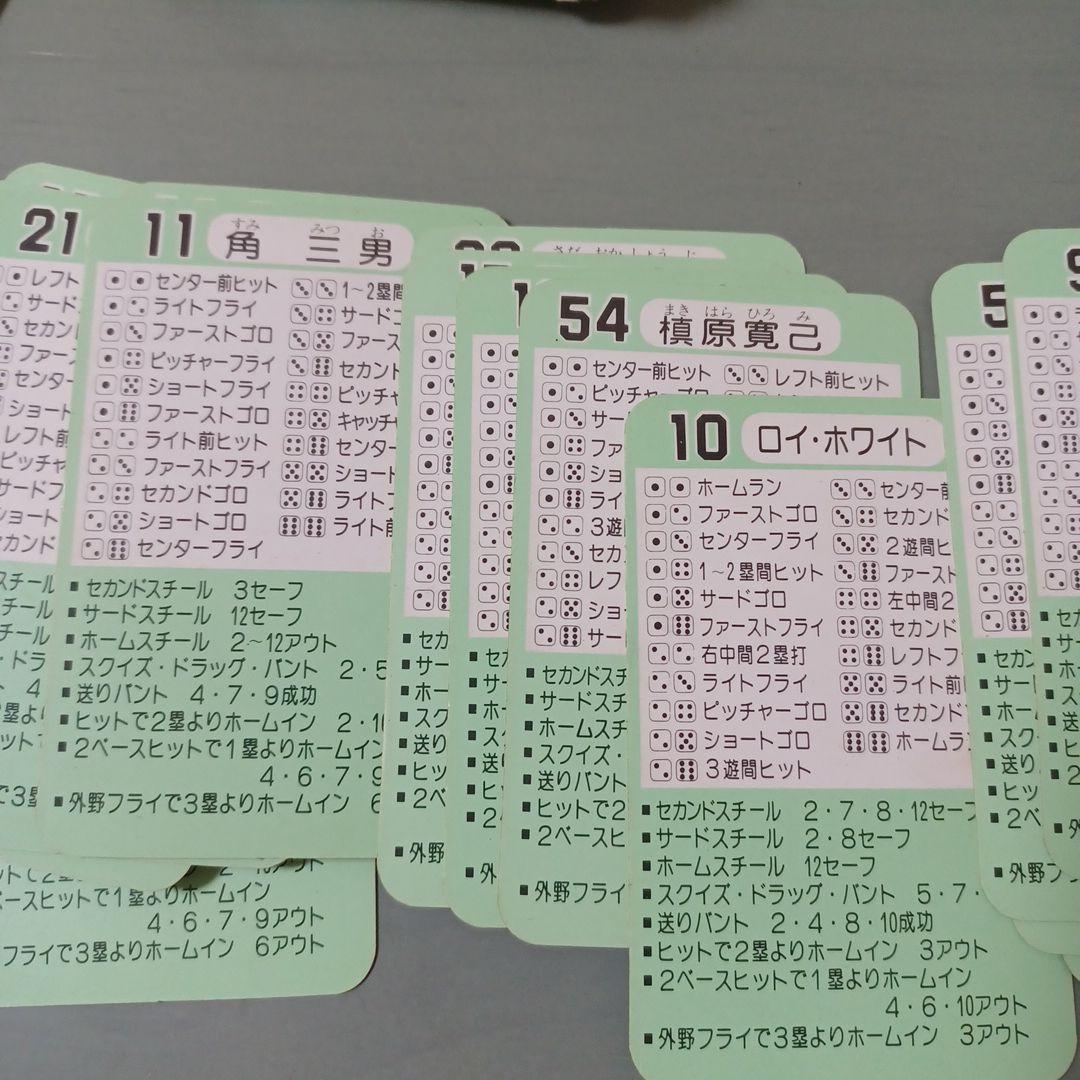 21
レフト
サード
セカン
ファー
センター
ショート
レフト前
ピッチャ
サードフ
ショート
セカンド
11 角 三男
すみ みつ お
センター前ヒット
ライトフライ
ファーストゴロ
ピッチャーフライ
ショートフライ
ファーストゴロ
ライト前ヒット
ファーストフライ
セカンドゴロ
ショートゴロ
センターフライ
1〜2塁間
サードゴ
ファース
セカン
ピッチャ
キャッチャ
センター
ショート
ライト
ライト前
▪セカンドスチール 3セーフ
▪サードスチール 12セーフ
▪ホームスチール 2〜12アウト
▪スクイズ・ドラッグ・バント 2・5
▪送りバント 4・7・9成功
▪ヒットで2塁よりホームイン 2・10
▪2ベースヒットで1塁よりホームイン
4・6・7・9
▪外野フライで3塁よりホームイン 6
ベースヒットで1塁よりホームイン
4・6・7・9アウト
フライで3塁よりホームイン 6アウト
さだ おか しょう じ
▪セカ
▪サー
▪ホー
▪スク
▪送り
▪ヒッ
▪2ベ
▪外野
54 槙原寛己
まき はら ひろ み
センター前ヒット
ピッチャーゴロ
サー
ファ
ショ
ライ
3遊
セカ
レフ
ショ
サー
レフト前ヒット
▪セカンドスチ
▪サードスチ
▪ホームスチ
▪スクイズ・
▪送りバント
▪ヒットで2
▪2ベースヒ
▪外野フライ
10 ロイ・ホワイト
ホームラン
ファーストゴロ
センターフライ
1〜2塁間ヒット
サードゴロ
ファーストフライ
右中間2塁打
ライトフライ
ピッチャーゴロ
ショートゴロ
3遊間ヒット
センター前
セカンド
2遊間ヒ
ファースト
左中間2
セカンド
レフトフ
ライト前
セカンド
ホームラン
▪セカンドスチール 2・7・8・12セーフ
▪サードスチール 2・8セーフ
▪ホームスチール 12セーフ
▪スクイズ・ドラッグ・バント 5・7・
▪送りバント 2・4・8・10成功
▪ヒットで2塁よりホームイン 3アウト
▪2ベースヒットで1塁よりホームイン
4・6・10アウト
▪外野フライで3塁よりホームイン 3アウト
5
▪セカン
▪サー
▪ホー
▪スク
▪送り
▪ヒッ
▪2ベ
▪外野フ